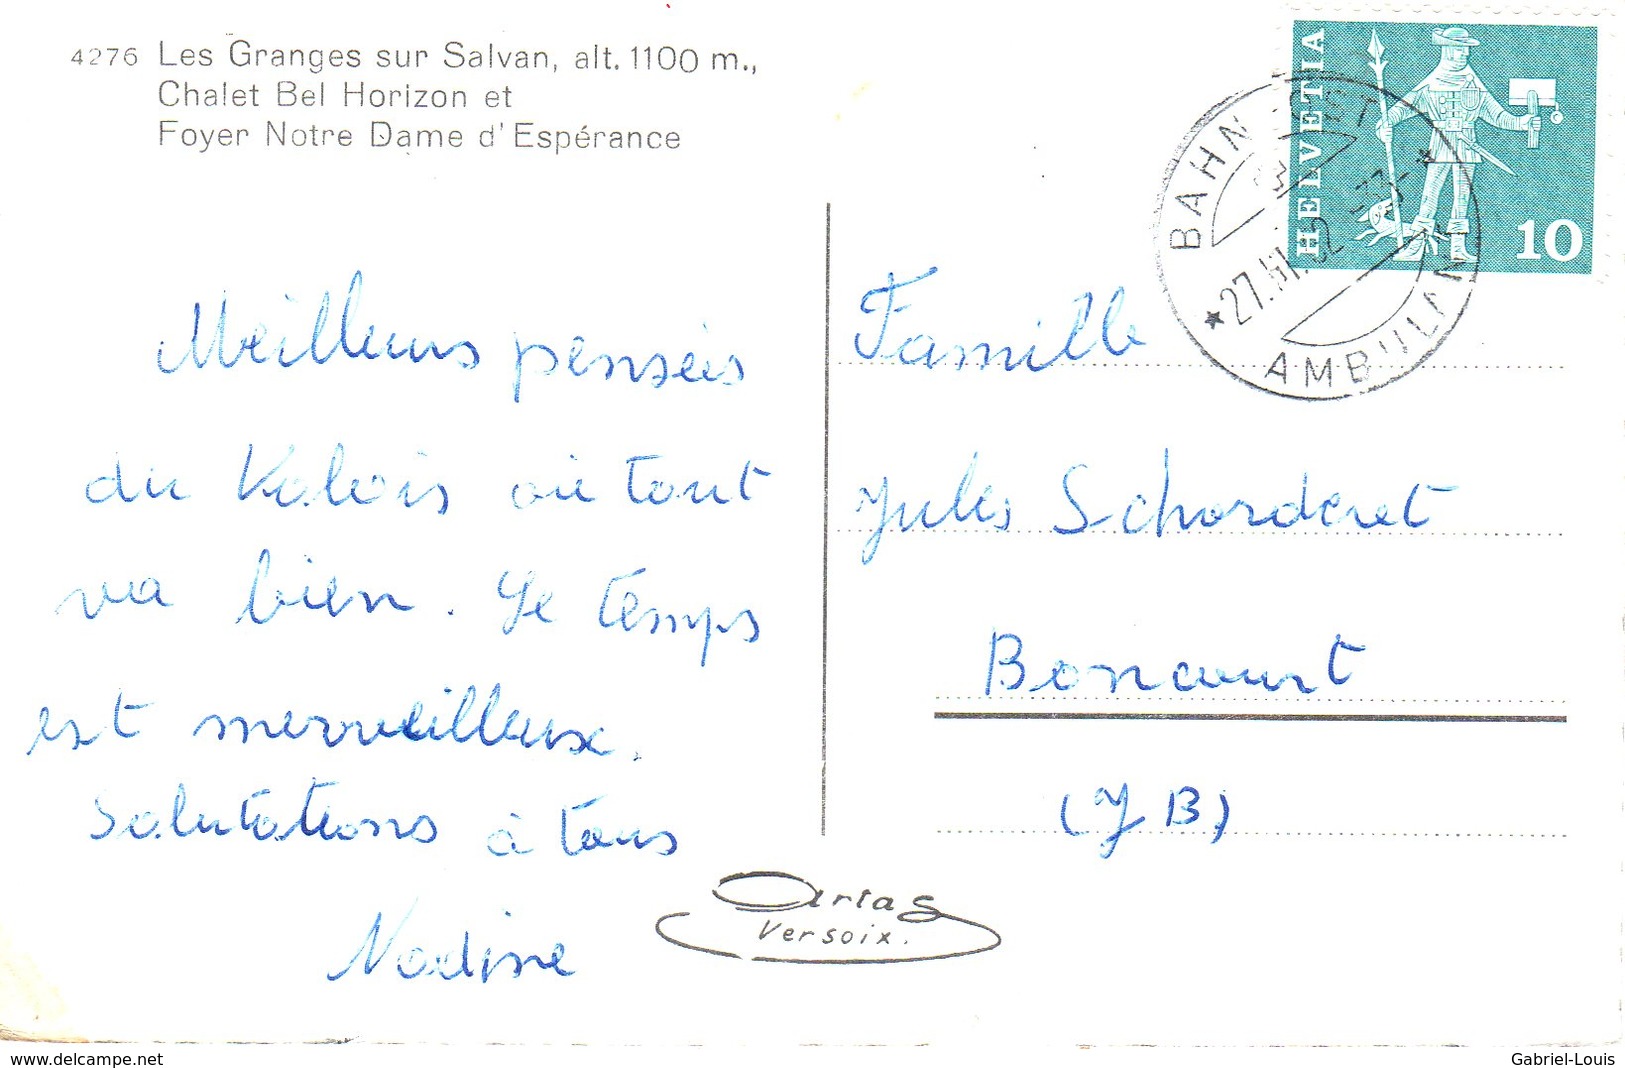 4276 Les Granges sur Salvan, alt. 1100 m.,
Chalet Bel Horizon et
Foyer Notre Dame d'Espérance
HELVETIA
10
BAHNPOST
AMBULANT
Meilleurs pensées
du Valais où tout
va bien. Le temps
est merveilleux.
Salutations à tous
Nadine
Famille
Jules Schorderet
Boncourt
(JB)
Artas
Versoix.
www.delcampe.net
Gabriel-Louis